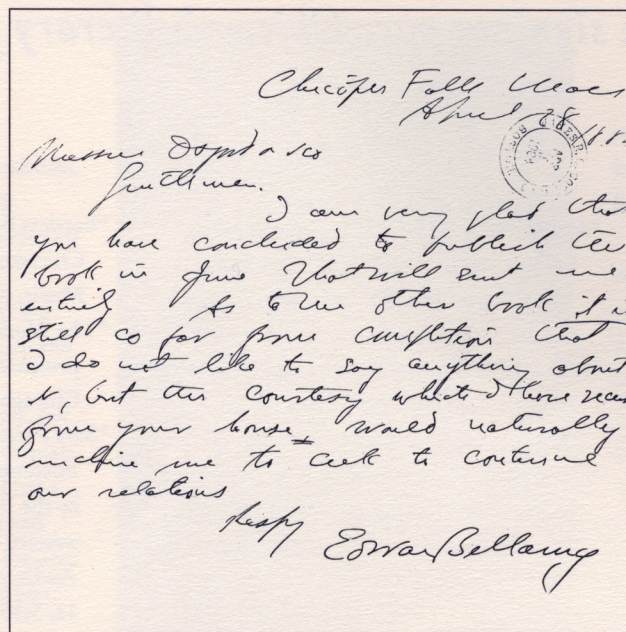 Chicopee Falls Mass
April 28 188
Messrs Osgood & Co
Gentlemen.
I am very glad that
you have concluded to publish the
book in June That will suit me
entirely As to the other book it is
still so far from completion that
I do not like to say anything about
it, but the courtesy which I have recei
from your house would naturally
incline me to seek to continue
our relations
Respy
Edward Bellamy